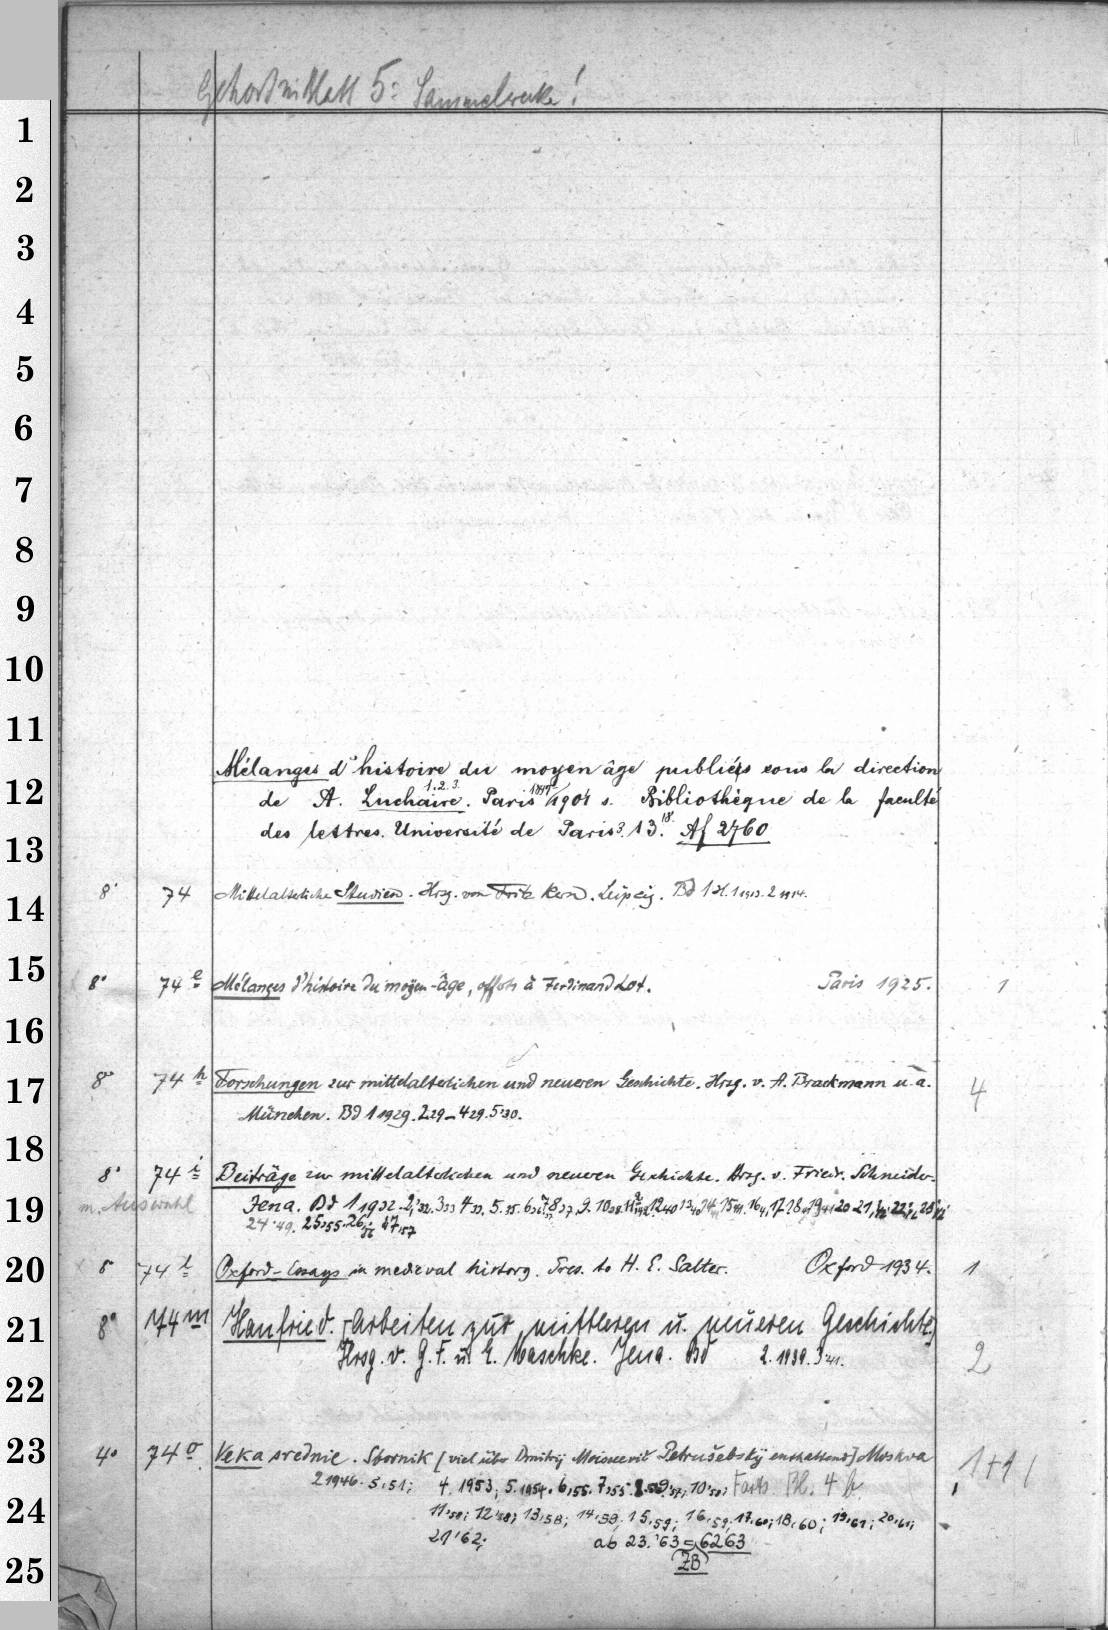 5: Sammelwerke!
1
2
3
4
5
6
7
8
9
10
11
Mélanges d'histoire du moyen âge publiées sous la direction
12 de A. Luchaire. 1.2.3. Paris 1897/1904 s. Bibliothèque de la faculté
13 des lettres. Université de Paris 3. 13. 18. Af 2760
14 8° 74 Mittelalterliche Studien. Hrsg. von Fritz Kern. Leipzig. Bd 1 H. 1 1913. 2 1914.
15 8° 74 e Mélanges d'histoire du moyen-âge, offerts à Ferdinand Lot. Paris 1925. 1
16
17 8° 74 h Forschungen zur mittelalterlichen und neueren Geschichte. Hrsg. v. A. Brackmann u. a. 4
München. Bd 1 1929. 2 29 – 4 29. 5 '30.
18
8° 74 i Beiträge zur mittelalterlichen und neueren Geschichte. Hrsg. v. Friedr. Schneider.
19 m. Auswahl Jena. Bd 1 1932
24 '49. 25,55. 26, 56 27,57
20 8° 74 l Oxford-Essays in medieval history. Pres. to H. E. Salter. Oxford 1934. 1
21 8° 74 m Hanfried. Arbeiten zur mittleren u. neueren Geschichte
Hrsg. v. G. F. u. E. Maschke. Jena. Bd 2. 1939. 3 '41. 2
22
23 4° 74 o Veka srednie. Sbornik [viel über Dmitrij Moiseevič Petruševskij enthaltend] Moskva 1+1
2 1946. 5,51; 4. 1953, 5. 1954. 6,55. 7,55. 10 '57; Forts. Bl. 4 b
24 11 '58; 12 '58; 13,58; 14,59. 15,59; 16,59; 17.60; 18,60; 19,61; 20,61;
21 '62; ab 23. '63 = 6263
25 ZB